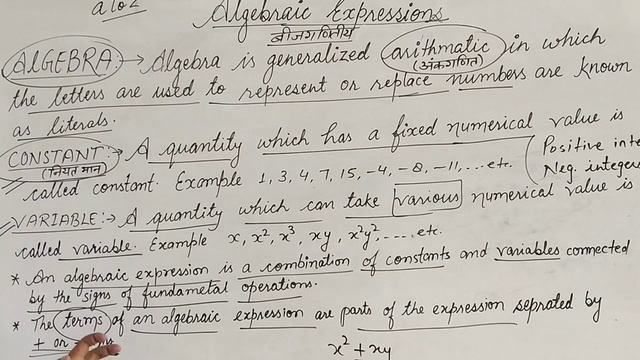 a to z
Algebraic Expressions
बीजगणितीय
ALGEBRA:→ Algebra is generalized arithmatic in which
(अंकगणित)
the letters are used to represent or replace numbers are known
as literals.
CONSTANT:→ A quantity which has a fixed numerical value is
(नियत मान)
called constant. Example 1, 3, 4, 7, 15, -4, -8, -11, ... etc. (Positive inte
Neg. integers
VARIABLE:→ A quantity which can take various numerical value is
called variable. Example x, x², x³, xy, x²y², ..... etc.
* An algebraic expression is a combination of constants and variables connected
by the signs of fundametal operations.
* The terms of an algebraic expression are parts of the expression seprated by
+ or
x² + xy